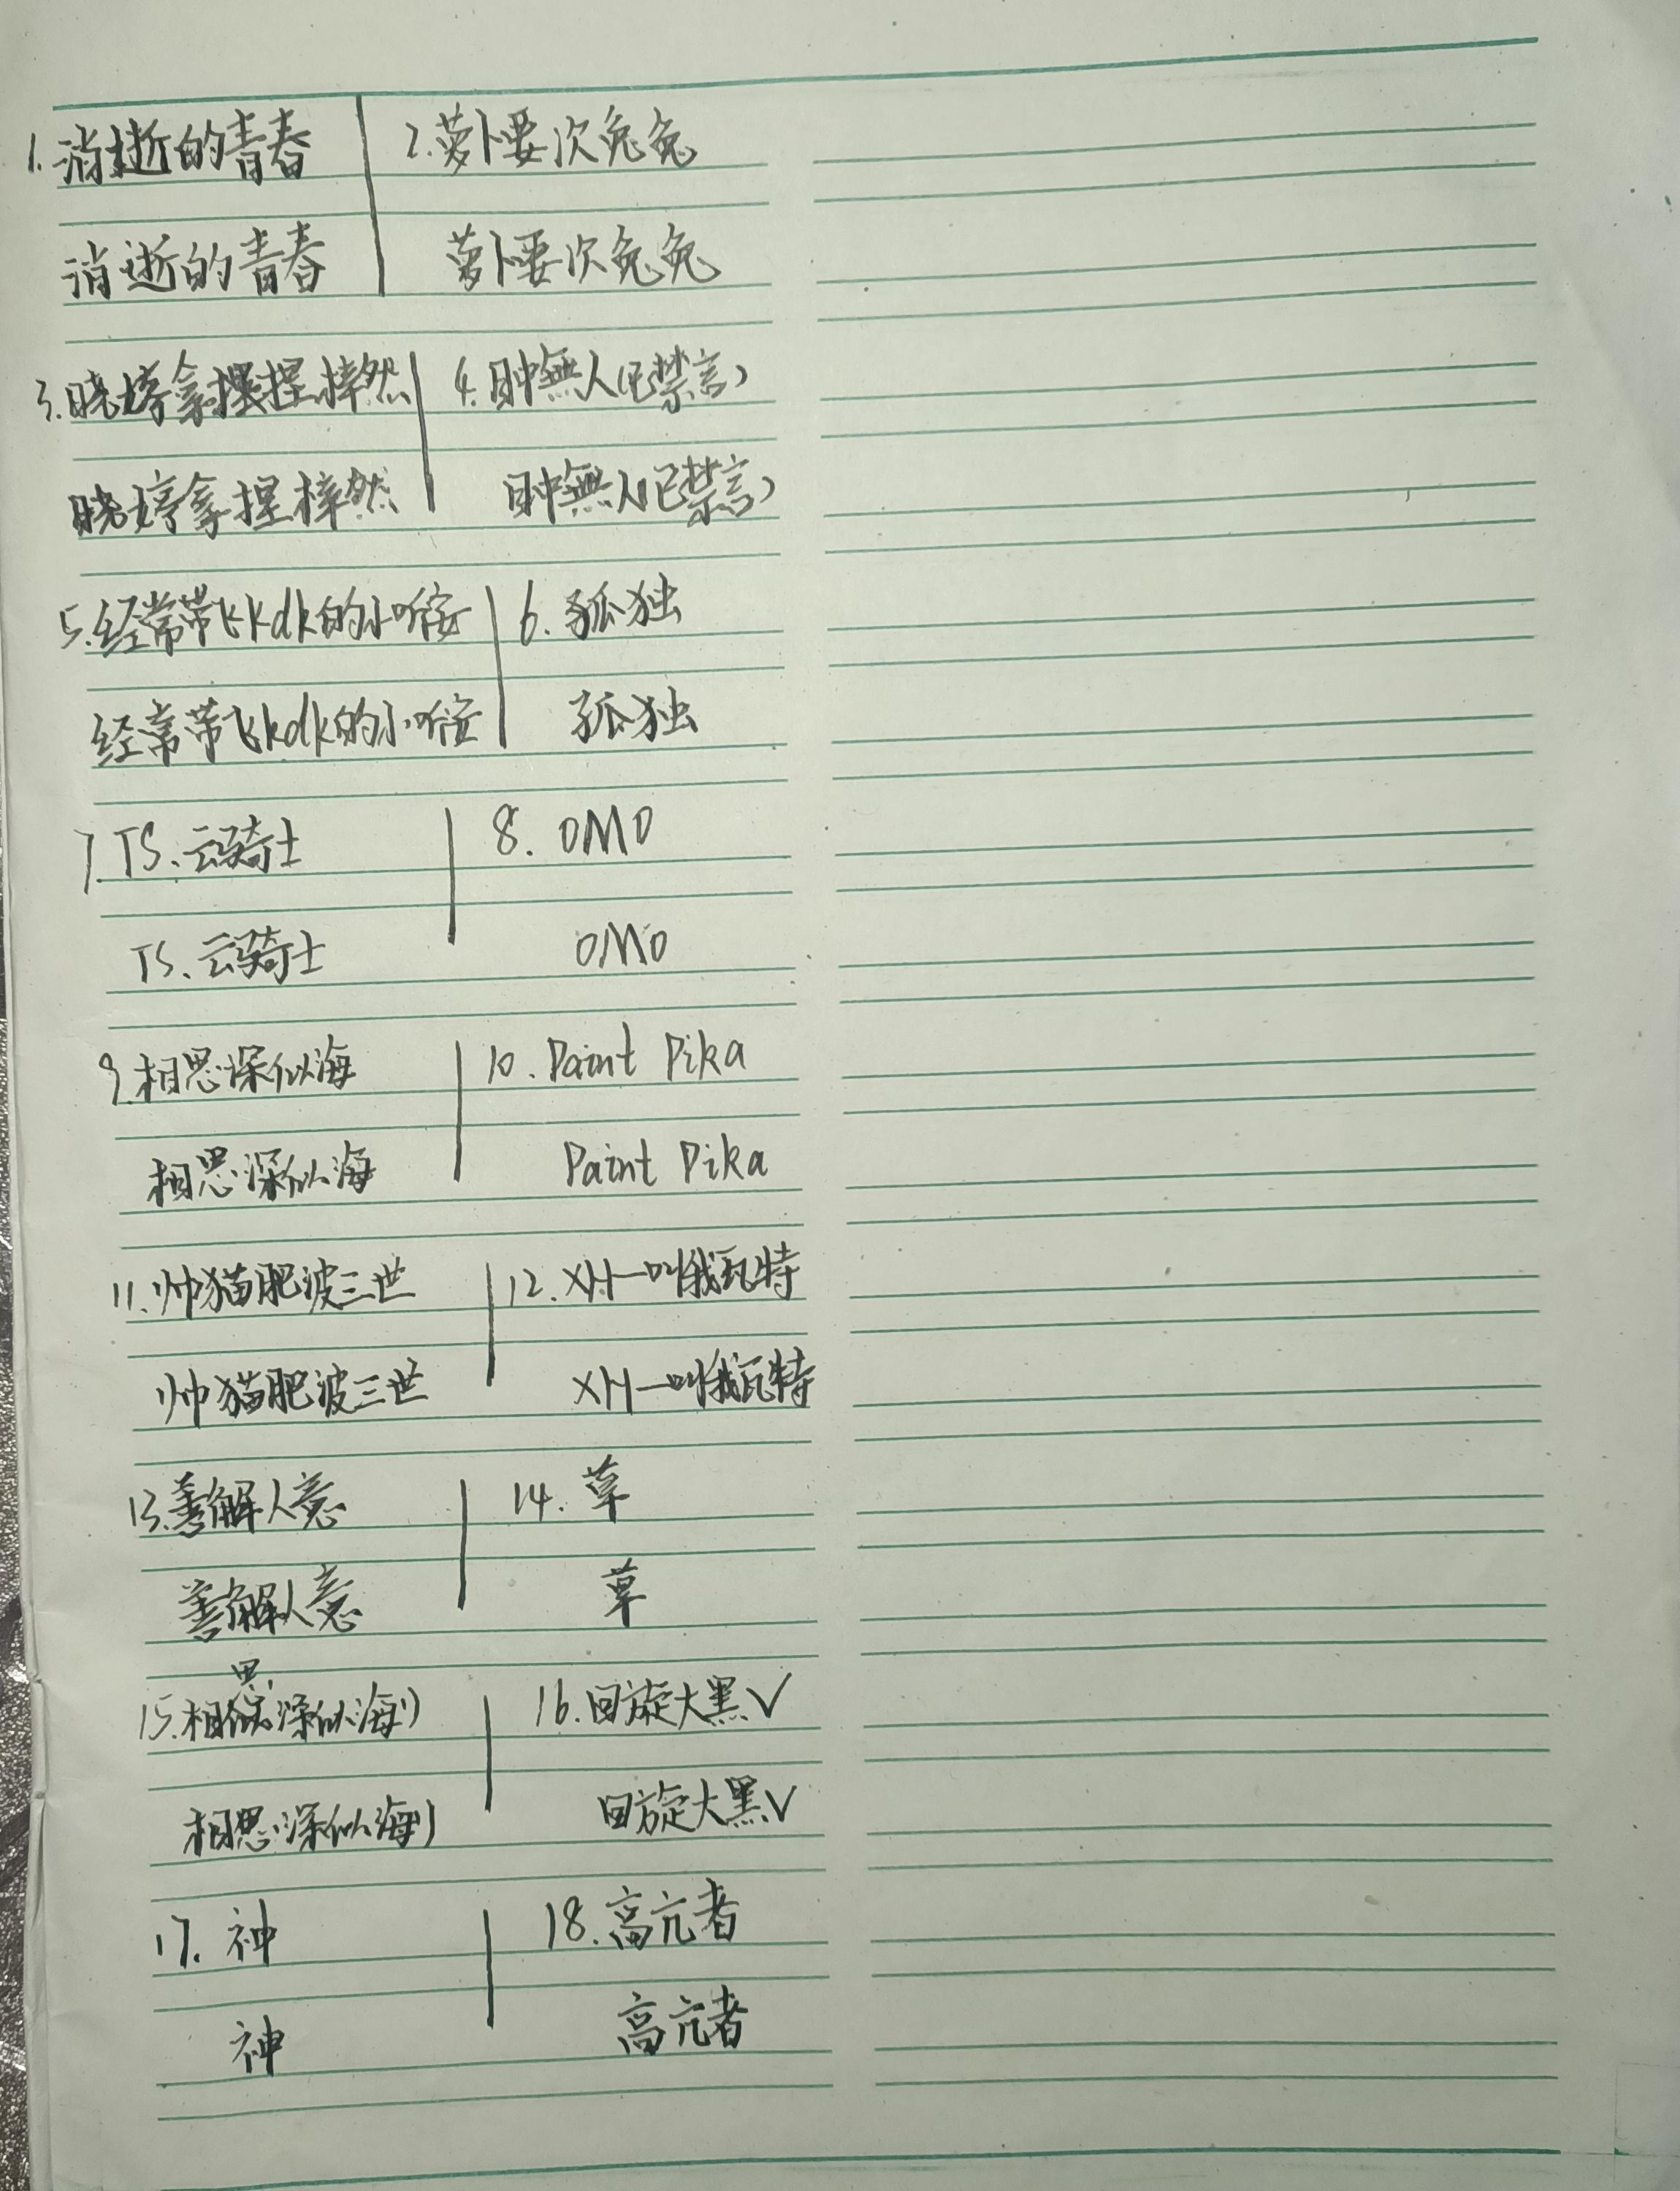 1.消逝的青春 2.萝卜要次兔兔
消逝的青春 萝卜要次兔兔
3.晓婷拿捏梓然 4.目中無人(已禁言)
晓婷拿捏梓然 目中無人(已禁言)
5.经常带飞kdk的小 6.孤独
经常带飞kdk的小 孤独
7.TS、云骑士 8.OMO
TS、云骑士 OMO
9.相思深似海 10.Paint Pika
相思深似海 Paint Pika
11.帅猫肥波三世 12.XH一叫我瓦特
帅猫肥波三世 XH一叫我瓦特
13.善解人意 14.草
善解人意 草
15.相思深似海 16.回旋大黑V
相思深似海 回旋大黑V
17.神 18.高亢者
神 高亢者